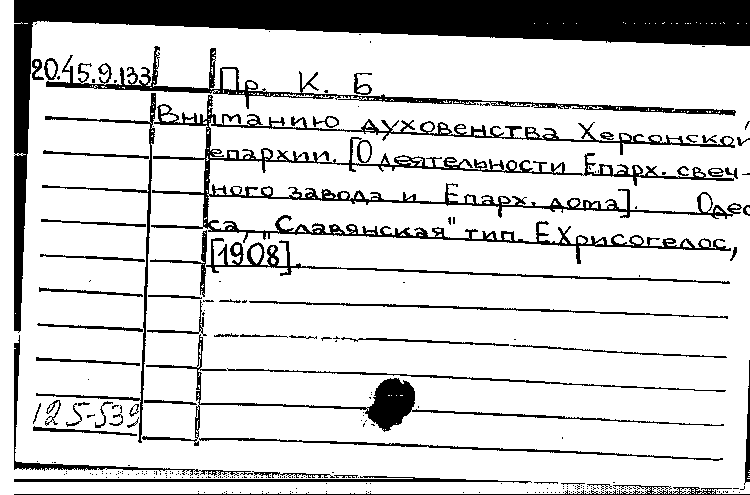 20.45.9.133
Пр. К. Б.
Вниманию духовенства Херсонской
епархии. [О деятельности Епарх. свеч-
ного завода и Епарх. дома]. Одес
са, „Славянская" тип. Е.Хрисогелос,
[1908].
125-539